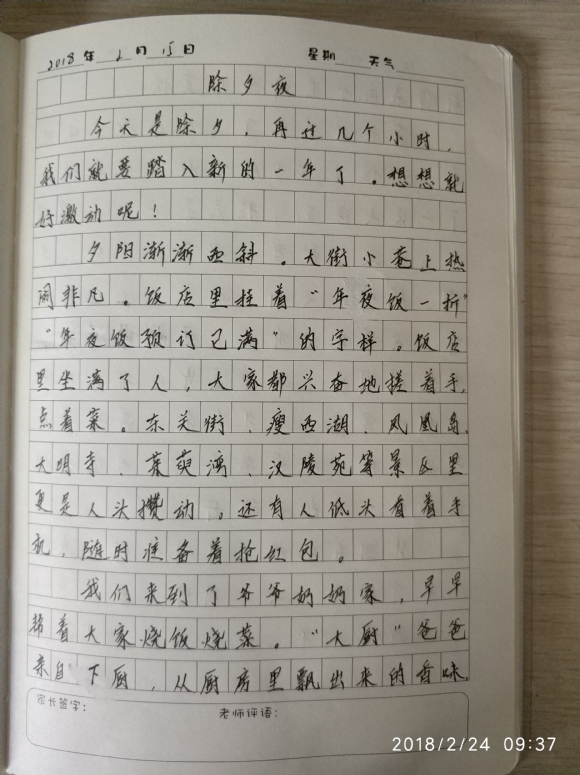 2018年2月15日 星期 天气
除夕夜
今天是除夕，再过几个小时，
我们就要踏入新的一年了。想想就
好激动呢！
夕阳渐渐西斜。大街小巷上热
闹非凡。饭店里挂着“年夜饭一折”
“年夜饭预订已满”的字样。饭店
里坐满了人，大家都兴奋地搓着手，
点着菜。东关街、瘦西湖、凤凰岛、
大明寺、茱萸湾、汉陵苑等景区里
更是人头攒动。还有人低头看着手
机，随时准备着抢红包。
我们来到了爷爷奶奶家，早早
帮着大家烧饭烧菜。“大厨”爸爸
亲自下厨，从厨房里飘出来的香味，
家长签字：
老师评语：
2018/2/24 09:37